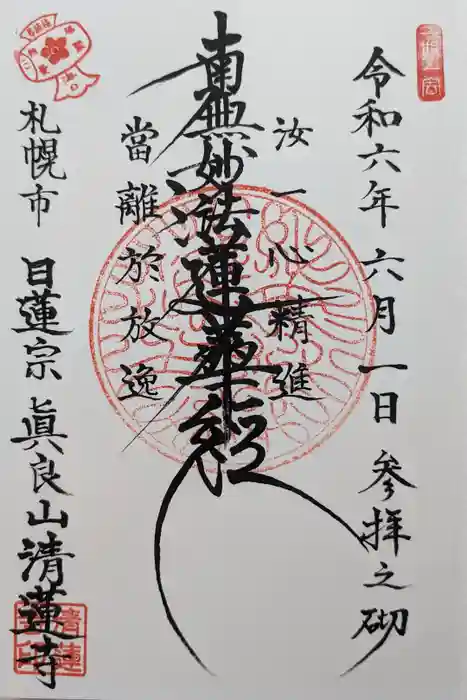 令和六年六月一日 参拝之砌
汝一心精進
南無妙法蓮華経
當離於放逸
札幌市 日蓮宗 眞良山 清蓮寺